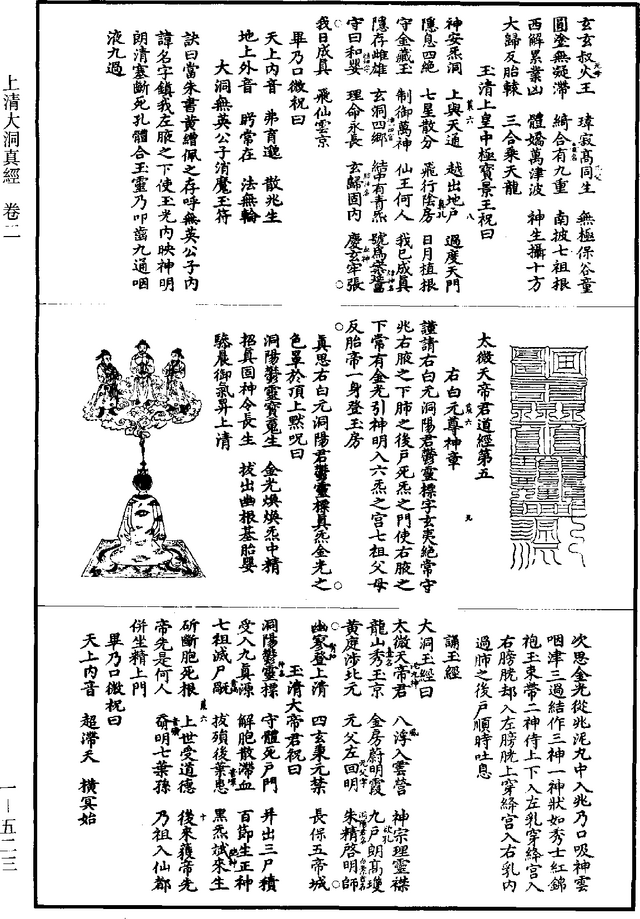 玄玄叔火王　瑋寂高同生　無極保谷童
圓塗無凝滯　綺合有九重　南披七祖根
西解累業山　體矯萬津波　神生攝十方
大歸反胎轅　三合乘天龍
玉清上皇中極寶景王祝曰
神安炁洞　上與天通　越出地戶　過度天門
隱息四絕　七星散分　飛行陰房　日月植根
守金藏玉　制御萬神　仙王何人　我已成真
隱存雌雄　玄洞四鄉　結中有青炁　號萬葉
守曰和嬰　理命永長　玄歸固內　慶玄牢張
我日成真　飛仙雲京
畢乃口微祝曰
天上內音　弗育邀　散兆生
地上外音　眄常在　法無輪
大洞無英公子消魔玉符
訣曰當朱書黃繒佩之存呼無英公子內
諱名字鎮我左腋之下使玉光內映神明
朗清塞斷死孔體合玉靈乃叩齒九通咽
液九過
太微天帝君道經第五
右白元尊神章
謹請右白元洞陽君鬱靈標字玄夷絕常守
兆右腋之下肺之後戶死炁之門使右腋之
下常有金光引神明入六炁之宮七祖父母
反胎帝一身登玉房
真思右白元洞陽君鬱靈標真炁金光之
色罩於頂上默咒曰
洞陽鬱靈寶菟生　金光煥煥炁中精
招真固神令長生　拔出幽根基胎嬰
驂晨御氣昇上清
次思金光從兆泥丸中入兆乃口吸神雲
咽津三過結作三神一神狀如秀士紅錦
袍玉束帶二神侍上下入左乳穿絳宮入
右膀胱却入左膀胱上穿絳宮入右乳內
過肺之後戶順時吐息
誦玉經
大洞玉經曰
太微天帝君　八浮入雲營　神宗理靈襟
龍山秀玉京　金房蔚明霞　九戶朗高瓊
黃庭涉北元　元父左回明　朱精啓明師
幽寥登上清　四玄秉元禁　長保五帝城
玉清大帝君祝曰
洞陽鬱靈標　守體死戶門　并出三尸積
受入九真源　解胞散滯血　百節生正種
七祖滅尸　拔殞後葉患　黑炁斌來生
斫斷胞死根　上世受道德　後來獲帝先
帝先是何人　奇明七葉孫　乃祖入仙都
併坐精上門
畢乃口微祝曰
天上內音　超滯天　橫冥始
上清大洞真經　卷二
一—五二三